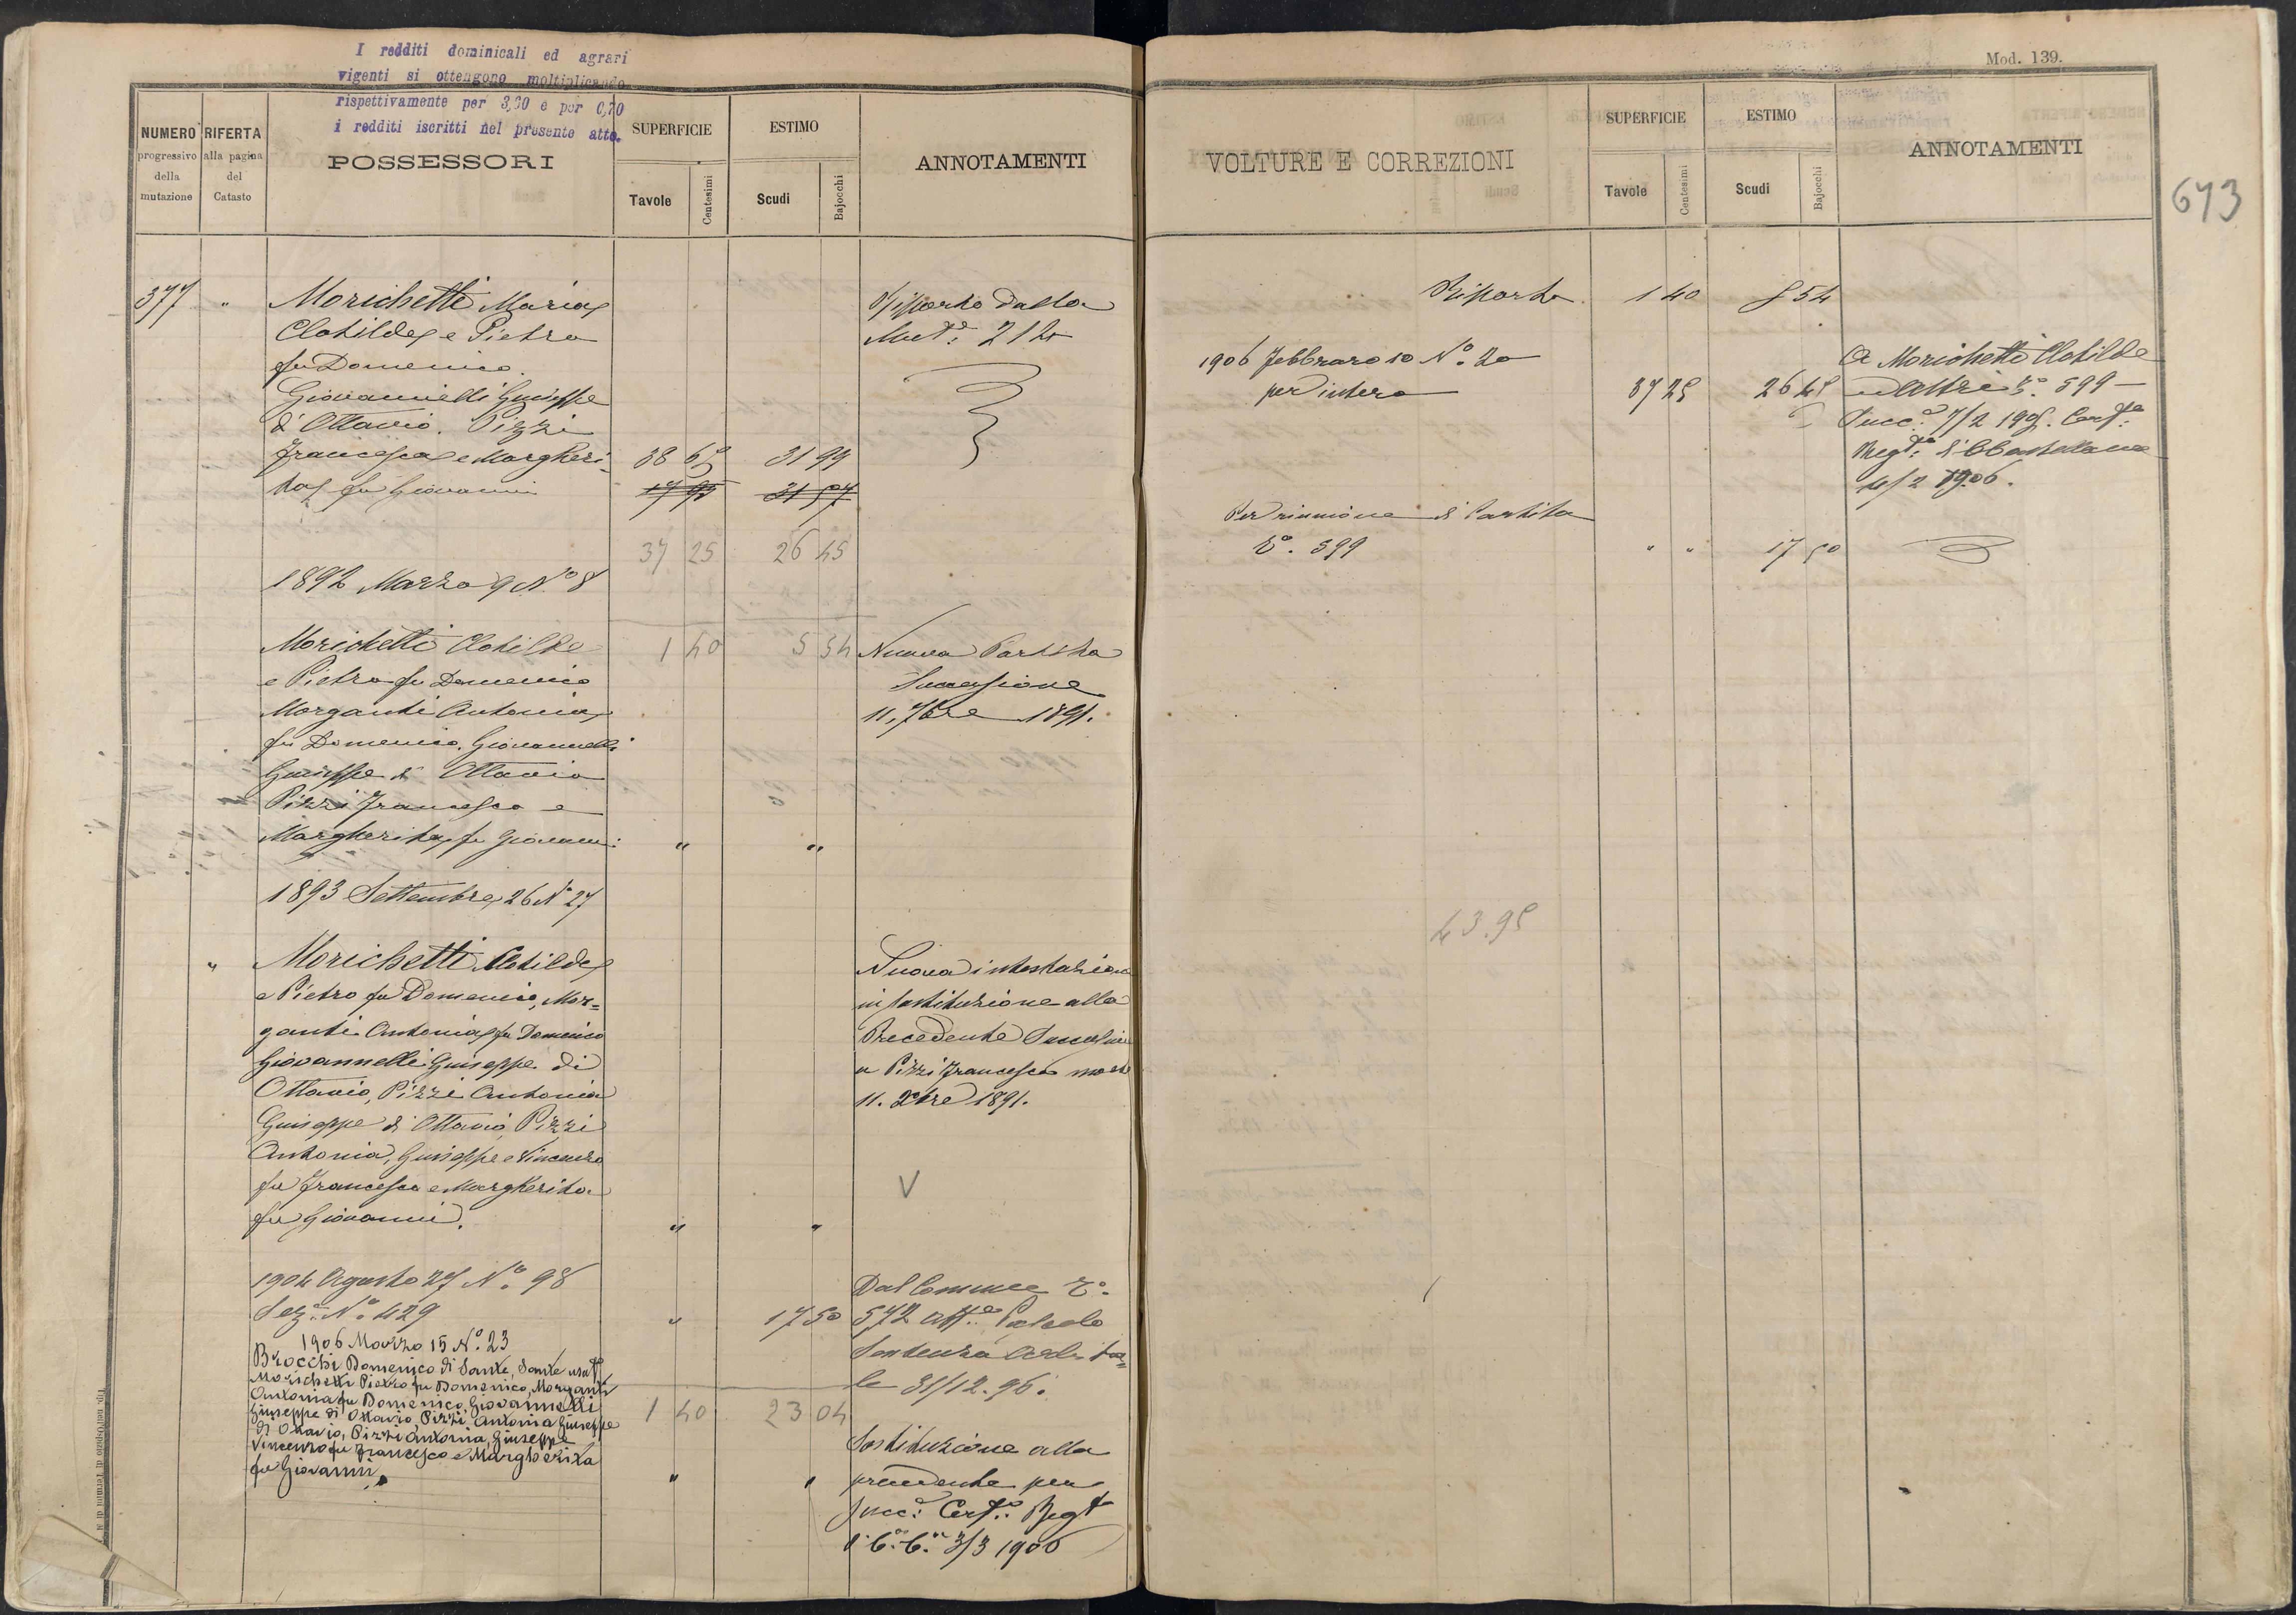 I redditi dominicali ed agrari
vigenti si ottengono moltiplicando
rispettivamente per 3,00 e per 0,70
i redditi iscritti nel presente atto.
NUMERO
progressivo
della
mutazione
RIFERTA
alla pagina
del
Catasto
POSSESSORI
SUPERFICIE
Tavole
Centesimi
ESTIMO
Scudi
Bajocchi
ANNOTAMENTI
377 "
Morichetti Maria
Clotilde e Pietro
fu Domenico.
Giovannelli Giuseppe
d'Ottavio. Pizzi
Francesca e Margheri-
ta fu Giovanni
38 65 31 99
31 97
37 25 26 45
Riporto dalla
Mut. 214
1892 Marzo 9 N.º 8
Morichetti Clotilde
e Pietro fu Domenico
Morganti Antonia
fu Domenico. Giovannelli
Giuseppe di Ottavio
Pizzi Francesco e
Margherita fu Giovanni
1 40 5 54
" "
Nuova Partita
Successione
11. 7bre 1891.
1893 Settembre 26 N.º 27
" Morichetti Clotilde
e Pietro fu Domenico, Mor=
ganti Antonia fu Domenico
Giovannelli Giuseppe di
Ottavio, Pizzi Antonia
Giuseppe di Ottavio Pizzi
Antonia, Giuseppe e Vincenzo
fu Francesco e Margherita
fu Giovanni.
" "
Nuova intestazione
in sostituzione alla
Precedente
a Pizzi Francesco
11. Xbre 1891.
V
1904 Agosto 27 N.º 98
Sez. N.º 429
" 17 50
Dal Comune
572
Sentenza
le 31/12.96.
1906 Marzo 15 N.º 23
Brocchi Domenico di Sante, Sante
Morichetti Pietro fu Domenico, Morganti
Antonia fu Domenico, Giovannelli
Giuseppe di Ottavio, Pizzi Antonia Giuseppe
di Ottavio, Pizzi Antonia, Giuseppe
Vincenzo fu Francesco e Margherita
fu Giovanni.
1 40 23 04
" "
Sostituzione alla
precedente per
Succ. Cert. Regt
C. C. 3/3 1906
Mod. 139.
VOLTURE E CORREZIONI
SUPERFICIE
Tavole
Centesimi
ESTIMO
Scudi
Bajocchi
ANNOTAMENTI
673
Riporto 1 40 5 54
1906 Febbraro 10 N.º 20
per intero
37 25 26 45
A Morichetti Clotilde
ed Altri 599
Succ. 7/2 1905. Cert.
Regt. C Castellana
4/2 1906.
Per riunione di Partita
599
" " 17 50
43.95